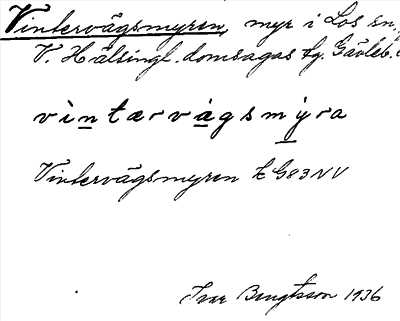 Vintervägsmyren, myr i Los sn,
V. Hälsingl. domsagas tg. Gävleb.
vìntærvágsmýra
Vintervägsmyren E G83NV
Ivar Bengtsson 1936